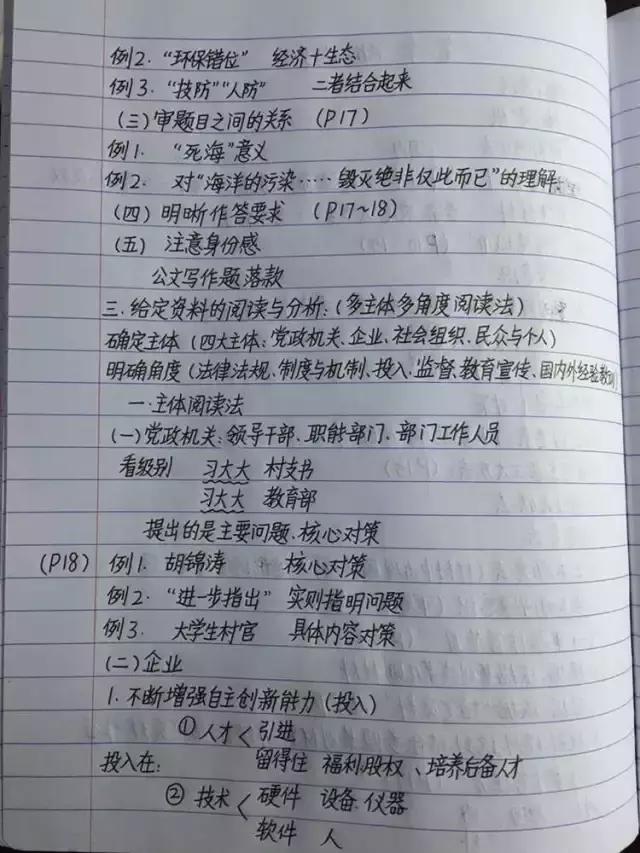 例2. “环保错位” 经济十生态
例3. “技防”“人防” 二者结合起来
(三)审题目之间的关系 (P17)
例1. “死海”意义
例2. 对“海洋的污染……毁灭绝非仅此而已”的理解.
(四)明晰作答要求 (P17~18)
(五) 注意身份感
公文写作题落款
三.给定资料的阅读与分析:(多主体多角度阅读法)
确定主体(四大主体:党政机关、企业、社会组织、民众与个人)
明确角度(法律法规、制度与机制、投入、监督、教育宣传、国内外经验教训
一.主体阅读法
(一)党政机关:领导干部、职能部门、部门工作人员
看级别 习大大 村支书
习大大 教育部
提出的是主要问题、核心对策
(P18) 例1. 胡锦涛 核心对策
例2. “进一步指出” 实则指明问题
例3. 大学生村官 具体内容对策
(二)企业
1.不断增强自主创新能力(投入)
①人才<引进
投入在: 留得住 福利.股权、培养后备人才
②技术<硬件 设备.仪器
软件 人